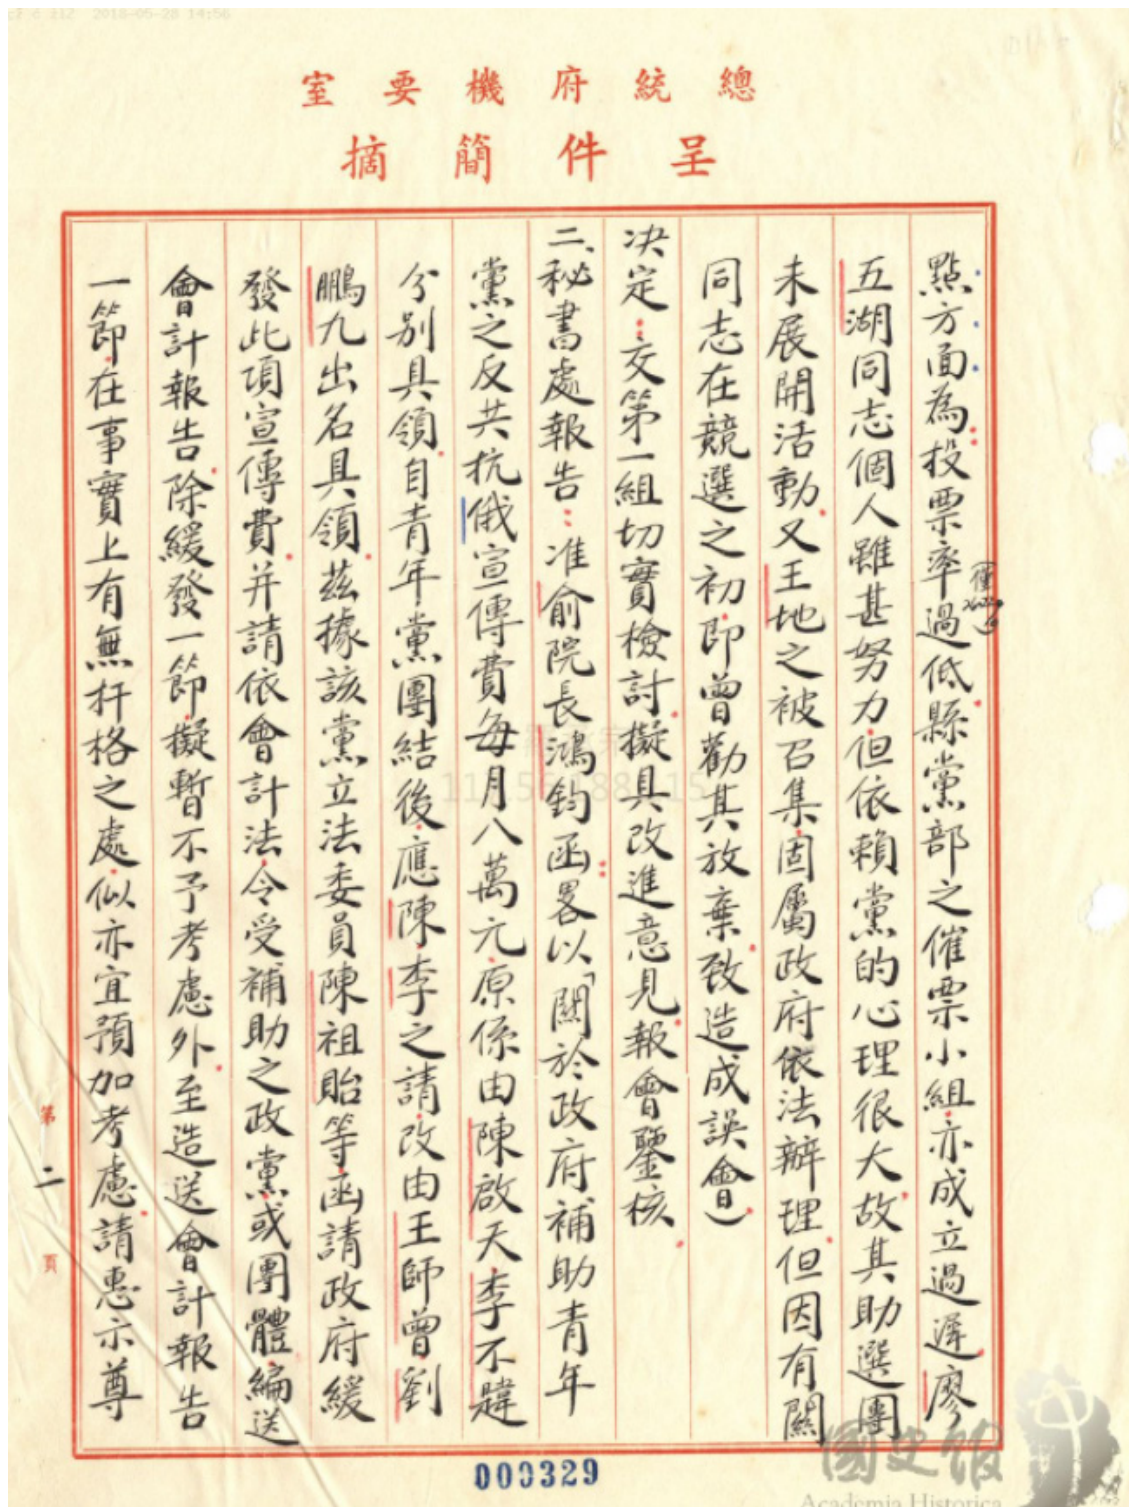 2018-05-28 14:56
總統府機要室
呈件簡摘
點方面為投票率過低縣黨部之催票小組亦成立過遲廖
五湖同志個人雖甚努力但依賴黨的心理很大故其助選團
未展開活動又王地之被召集固屬政府依法辦理但因有關
同志在競選之初即曾勸其放棄致造成誤會）
決定：交第一組切實檢討擬具改進意見報會鑒核
二、秘書處報告：准俞院長鴻鈞函畧以「關於政府補助青年
黨之反共抗俄宣傳費每月八萬元原係由陳啟天李不韙
分別具領自青年黨團結後應陳李之請改由王師曾劉
鵬九出名具領茲據該黨立法委員陳祖貽等函請政府緩
發此項宣傳費并請依會計法令受補助之政黨或團體編送
會計報告除緩發一節擬暫不予考慮外至造送會計報告
一節在事實上有無杆格之處似亦宜預加考慮請惠示尊
第二頁
000329
國史館
Academia Historica